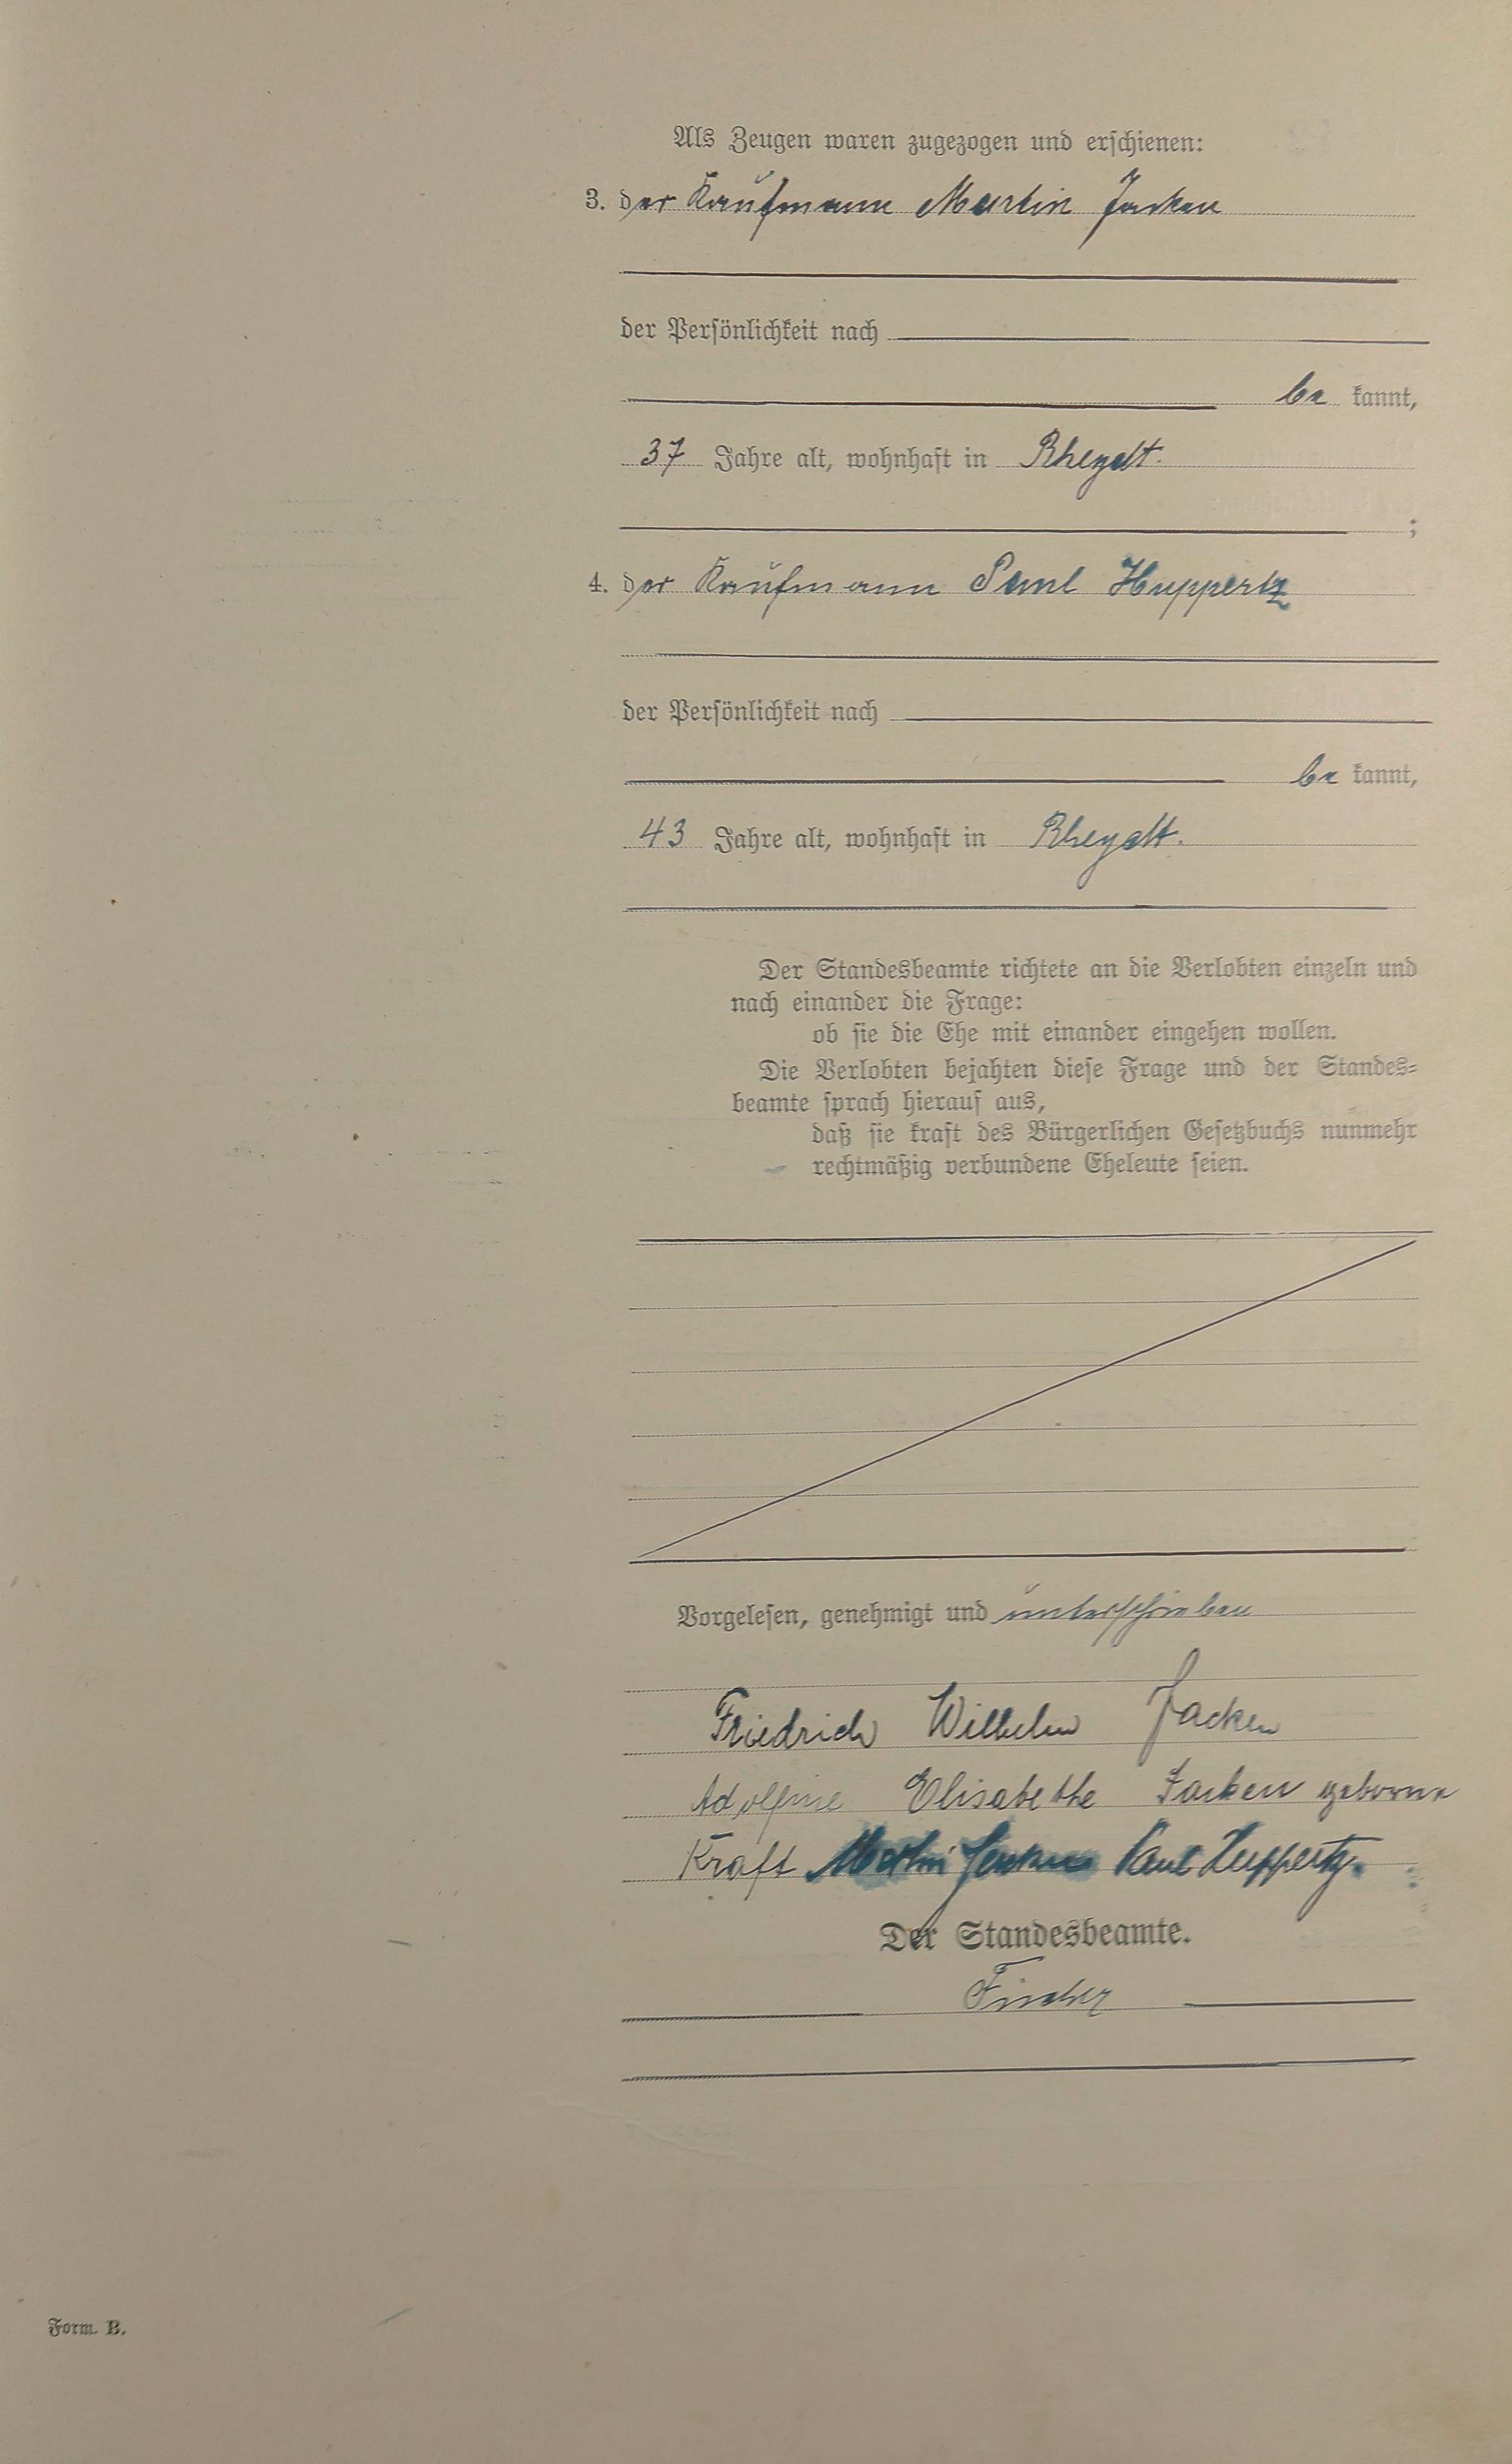 Als Zeugen waren zugezogen und erschienen:
3. der Kaufmann Martin Jacken
der Persönlichkeit nach
be kannt,
37 Jahre alt, wohnhaft in Rheydt.
;
4. der Kaufmann Paul Huppertz
der Persönlichkeit nach
be kannt,
43 Jahre alt, wohnhaft in Rheydt.
Der Standesbeamte richtete an die Verlobten einzeln und
nach einander die Frage:
ob sie die Ehe mit einander eingehen wollen.
Die Verlobten bejahten diese Frage und der Standes=
beamte sprach hierauf aus,
daß sie kraft des Bürgerlichen Gesetzbuchs nunmehr
rechtmäßig verbundene Eheleute seien.
Vorgelesen, genehmigt und unterschrieben
Friedrich Wilhelm Jacken
Adolfine Elisabethe Jacken geborene
Kraft Martin Jacken Paul Huppertz.
Der Standesbeamte.
Fischer
Form. B.